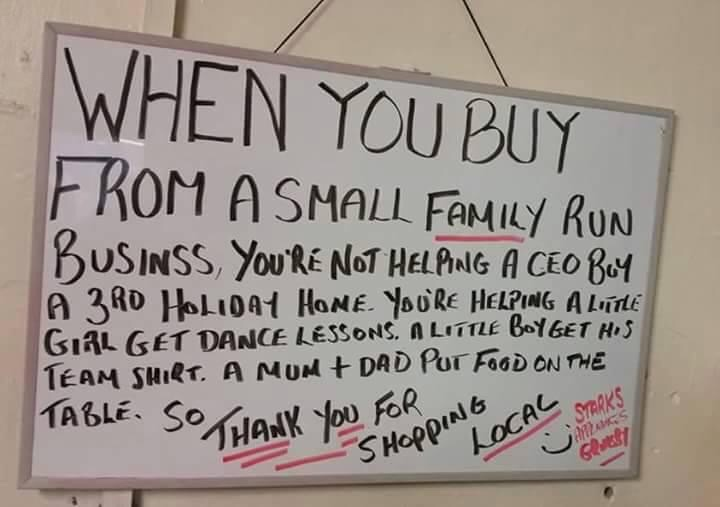 WHEN YOU BUY
FROM A SMALL FAMILY RUN
BUSINSS, YOU'RE NOT HELPING A CEO BUY
A 3RD HOLIDAY HOME. YOU'RE HELPING A LITTLE
GIRL GET DANCE LESSONS. A LITTLE BOY GET HIS
TEAM SHIRT. A MUM + DAD PUT FOOD ON THE
TABLE. SO THANK YOU FOR
SHOPPING LOCAL
STARKS
APPLIANCES
GRIMSBY